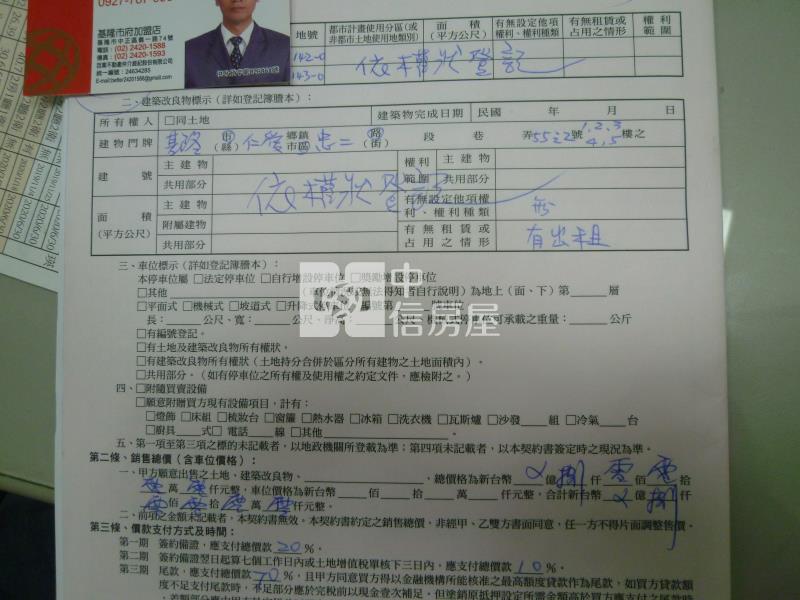 0927-787-
基隆市府加盟店
基隆市中正區義一路74號
電話：(02) 2420-1588
傳真：(02) 2420-1593
統一編號：24634285
地號
都市計畫使用分區(或非都市土地使用地類別)
面積(平方公尺)
有無設定他項權利、權利種類
有無租賃或占用之情形
權利範圍
142-0
143-0
依權狀登記
二、建築改良物標示（詳如登記簿謄本）：
所有權人 □同土地 建築物完成日期 民國 年 月 日
建物門牌 基隆 市(縣) 仁愛 鄉鎮市區 忠二 路(街) 段 巷 弄 55之22 號 1,2,3 4,5 樓之
建號 主建物 權利範圍 主建物
共用部分 共用部分
依權狀登記
面積(平方公尺) 主建物 有無設定他項權利、權利種類 無
附屬建物 有無租賃或占用之情形 有出租
共用部分
三、車位標示（詳如登記簿謄本）：
本停車位屬 □法定停車位 □自行增設停車位 □獎勵增設停車位
□其他 得知者自行說明）為地上（面、下）第 層
□平面式 □機械式 □坡道式 □升降式 編號第 號車位
長： 公尺、寬： 公尺、 車位可承載之重量： 公斤
□有編號登記。
□有土地及建築改良物所有權狀。
□有建築改良物所有權狀（土地持分合併於區分所有建物之土地面積內）。
□共用部分。（如有停車位之所有權及使用權之約定文件，應檢附之。）
四、□附隨買賣設備
□願意附贈買方現有設備項目，計有：
□燈飾 □床組 □梳妝台 □窗簾 □熱水器 □冰箱 □洗衣機 □瓦斯爐 □沙發 組 □冷氣 台
□廚具 式 □電話 線 □其他 。
五、第一項至第三項之標的未記載者，以地政機關所登載為準；第四項未記載者，以本契約書簽定時之現況為準。
第二條、銷售總價（含車位價格）：
一、甲方願意出售之土地、建築改良物、 ，總價格為新台幣 億 捌 仟 零 佰 零 拾
零 萬 零 仟元整，車位價格為新台幣 佰 拾 萬 仟元整，合計新台幣 億 捌 仟
零 佰 零 拾 零 萬 零 仟元整。
二、前項之金額未記載者，本契約書無效。本契約書約定之銷售總價，非經甲、乙雙方書面同意，任一方不得片面調整售價。
第三條、價款支付方式及時間：
第一期 簽約備證，應支付總價款 20 %。
第二期 簽約備證翌日起算七個工作日內或土地增值稅單核下三日內，應支付總價款 10 %。
第三期 尾款，應支付總價款 70 %，且甲方同意買方得以金融機構所能核准之最高額度貸款作為尾款，如買方貸款額
度不足支付尾款時，不足部分應於完稅前以現金壹次補足。但塗銷原抵押設定所需金額高於買方應支付之尾款時
信房屋